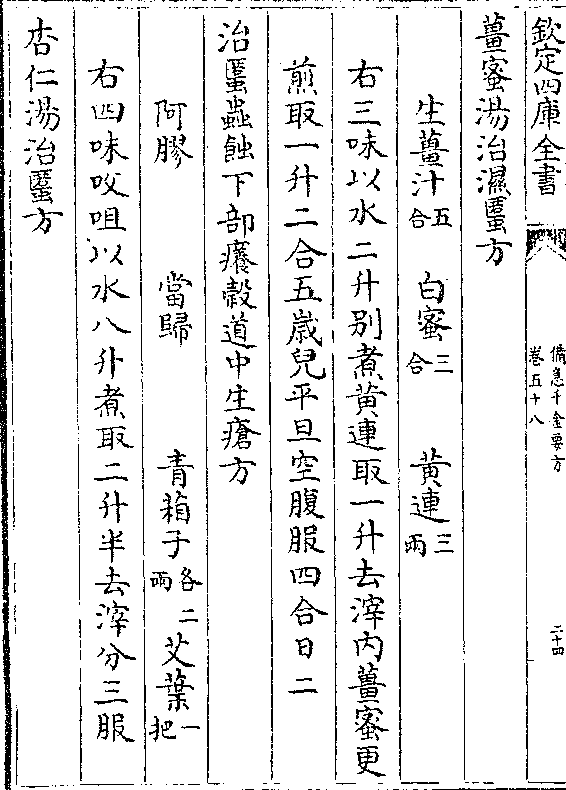 欽定四庫全書
備急千金要方
卷五十八
二十四
薑蜜湯治濕䘌方
生薑汁五合 白蜜三合 黄連三兩
右三味以水二升别煮黄連取一升去滓内薑蜜更
煎取一升二合五歲兒平旦空腹服四合日二
治䘌蟲蝕下部癢穀道中生瘡方
阿膠 當歸 青葙子各二兩 艾葉一把
右四味㕮咀以水八升煮取二升半去滓分三服
杏仁湯治䘌方